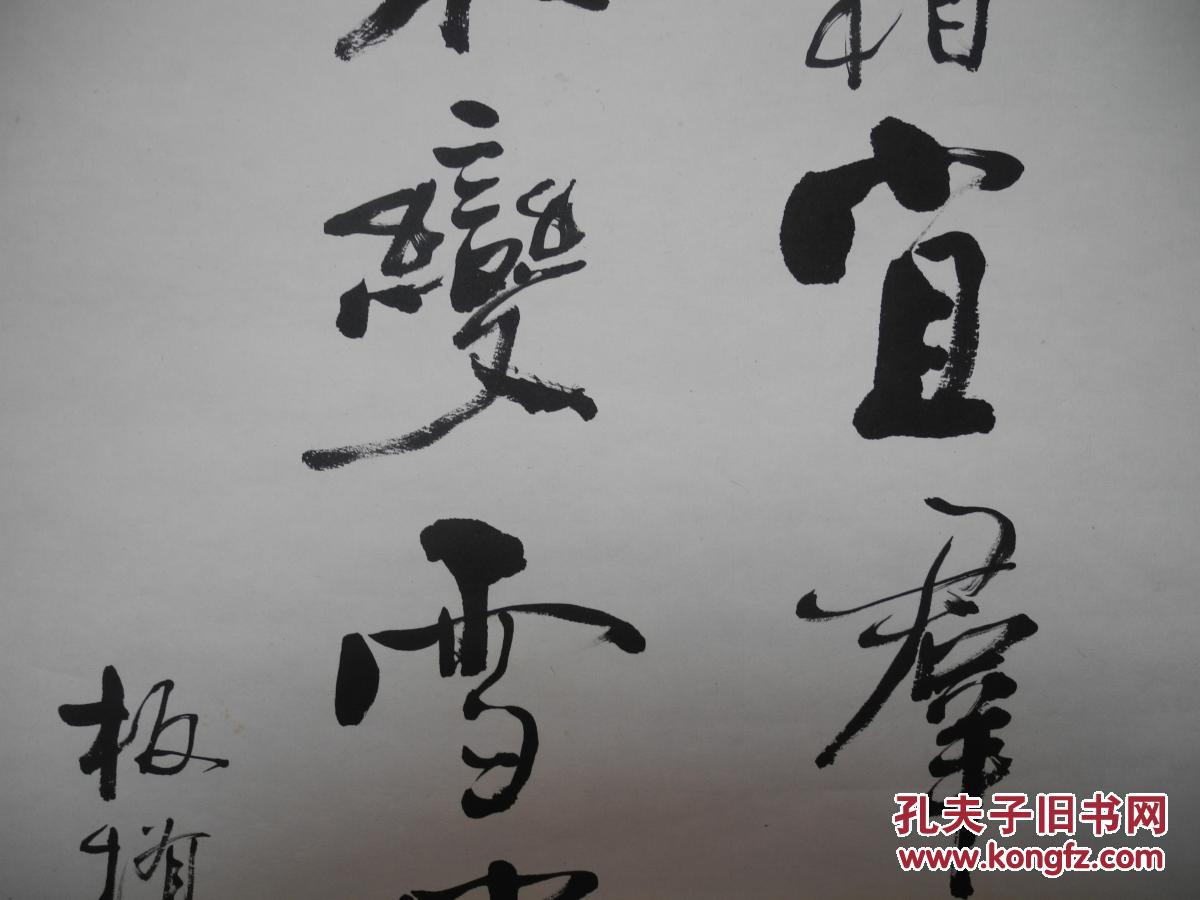 相宜羣
變雪
板橋
孔夫子旧书网
www.kongfz.com